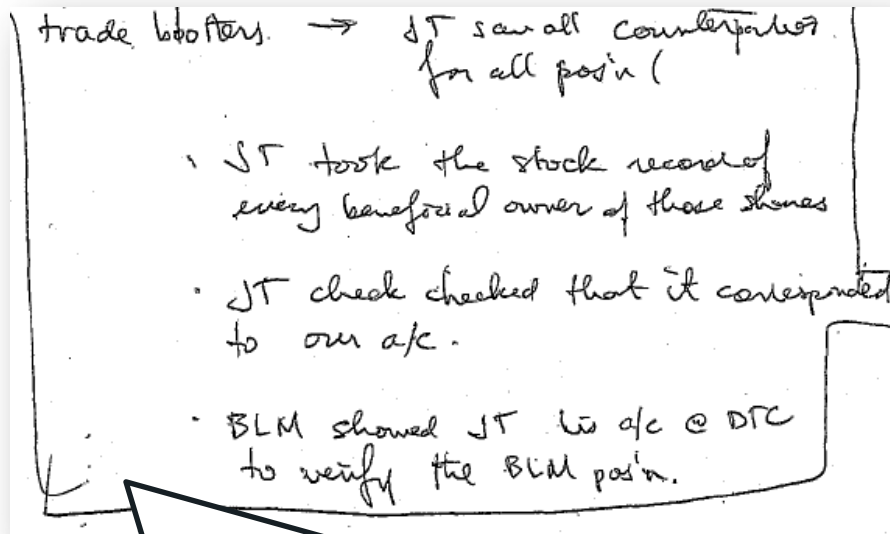 trade blotters. → JT saw all counterparties
for all pos'n (
· JT took the stock record of
every beneficial owner of those shares
· JT check checked that it corresponded
to our a/c.
· BLM showed JT his a/c @ DTC
to verify the BLM pos'n.